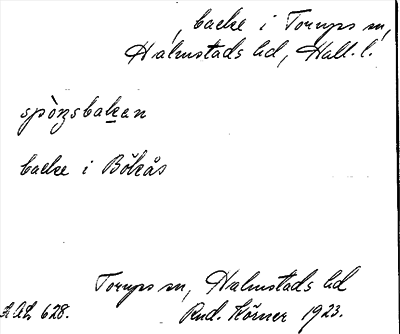 , backe i Torups sn,
Halmstads hd, Hall. l.
spò̀ŋsbakan
backe i Bökås
Torups sn, Halmstads hd
AAL 628. Rud. Körner 1923.